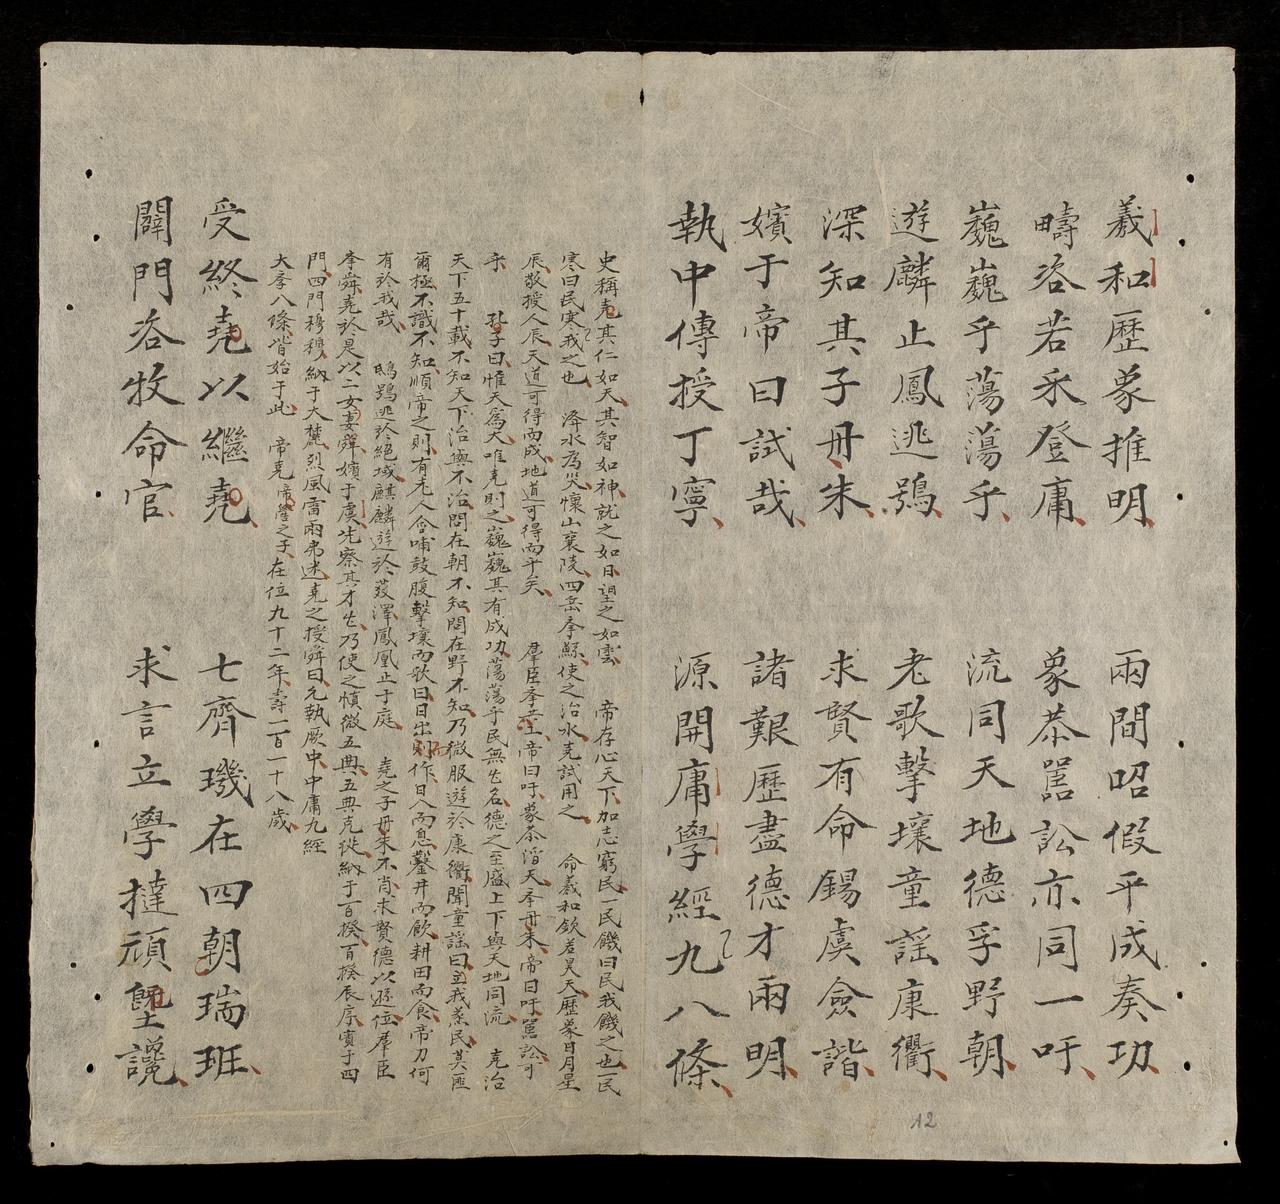 羲和歷象推明
兩間昭假平成奏功
疇咨若釆登庸
象恭嚚訟亦同一吁
巍巍乎蕩蕩乎
流同天地德孚野朝
遊麟止鳳逃鴞
老歌擊壤童謠康衢
深知其子丹朱
求賢有命錫虞僉諧
嬪于帝曰試哉
諸艱歷盡德才兩明
執中傳授丁寧
源開庸學經九八條
史稱堯其仁如天其智如神就之如日望之如雲 帝存心天下加志窮民一民饑曰民我饑之也一民
寒曰民寒我之也 洚水為災懷山襄陵四岳奉鯀使之治水堯試用之 命羲和欽若昊天歷象日月星
辰敬授人辰天道可得而成地道可得而平矣 羣臣奉共工帝曰吁象恭滔天奉丹朱帝曰吁嚚訟可
乎 孔子曰惟天爲大唯堯則之巍巍其有成功蕩蕩乎民無能名德之至盛上下與天地同流 堯治
天下五十載不知天下治與不治問在朝不知問在野不知乃微服遊於康衢聞童謠曰立我蒸民莫匪
爾極不識不知順帝之則有老人含哺鼓腹擊壤而歌曰日出而作日入而息鑿井而飲耕田而食帝力何
有於我哉 鴟鴞逃於絕域麒麟遊於薮澤鳳凰止于庭 堯之子丹朱不肖求賢德以遜位羣臣
奉舜堯於是以二女妻舜嬪于虞先察其才能乃使之慎徽五典五典克從納于百揆百揆辰序賓于四
門四門穆穆納于大麓烈風雷雨弗迷堯之授舜曰允執厥中中庸九經
大學八條皆始于此 帝堯帝嚳之子在位九十二年壽一百一十八歲
受終堯以繼堯
七齊璣在四朝瑞班
闢門咨牧命官
求言立學撻頑堲讒
12